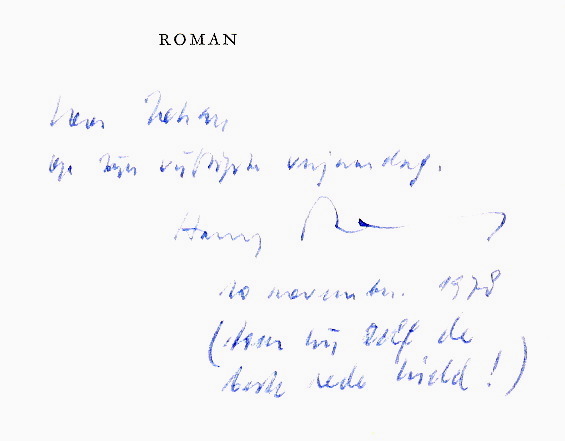 ROMAN
Voor
op zijn vijftigste verjaardag.
Harry
10 november. 1978
(toen hij zelf de
beste rede hield!)